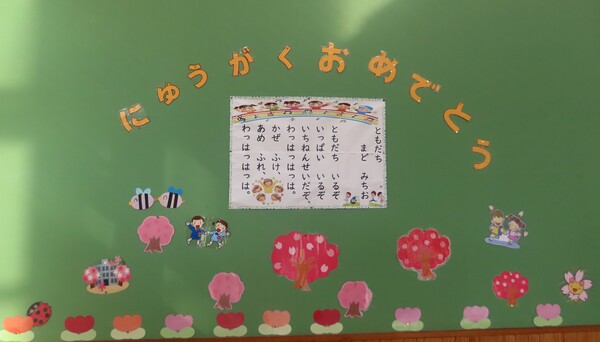 にゅうがくおめでとう
ともだち
まど みちお
ともだち いるぞ
いっぱい いるぞ
いちねんせいだぞ、
わっはっはっは。
かぜ ふけ、
あめ ふれ、
わっはっはっは。